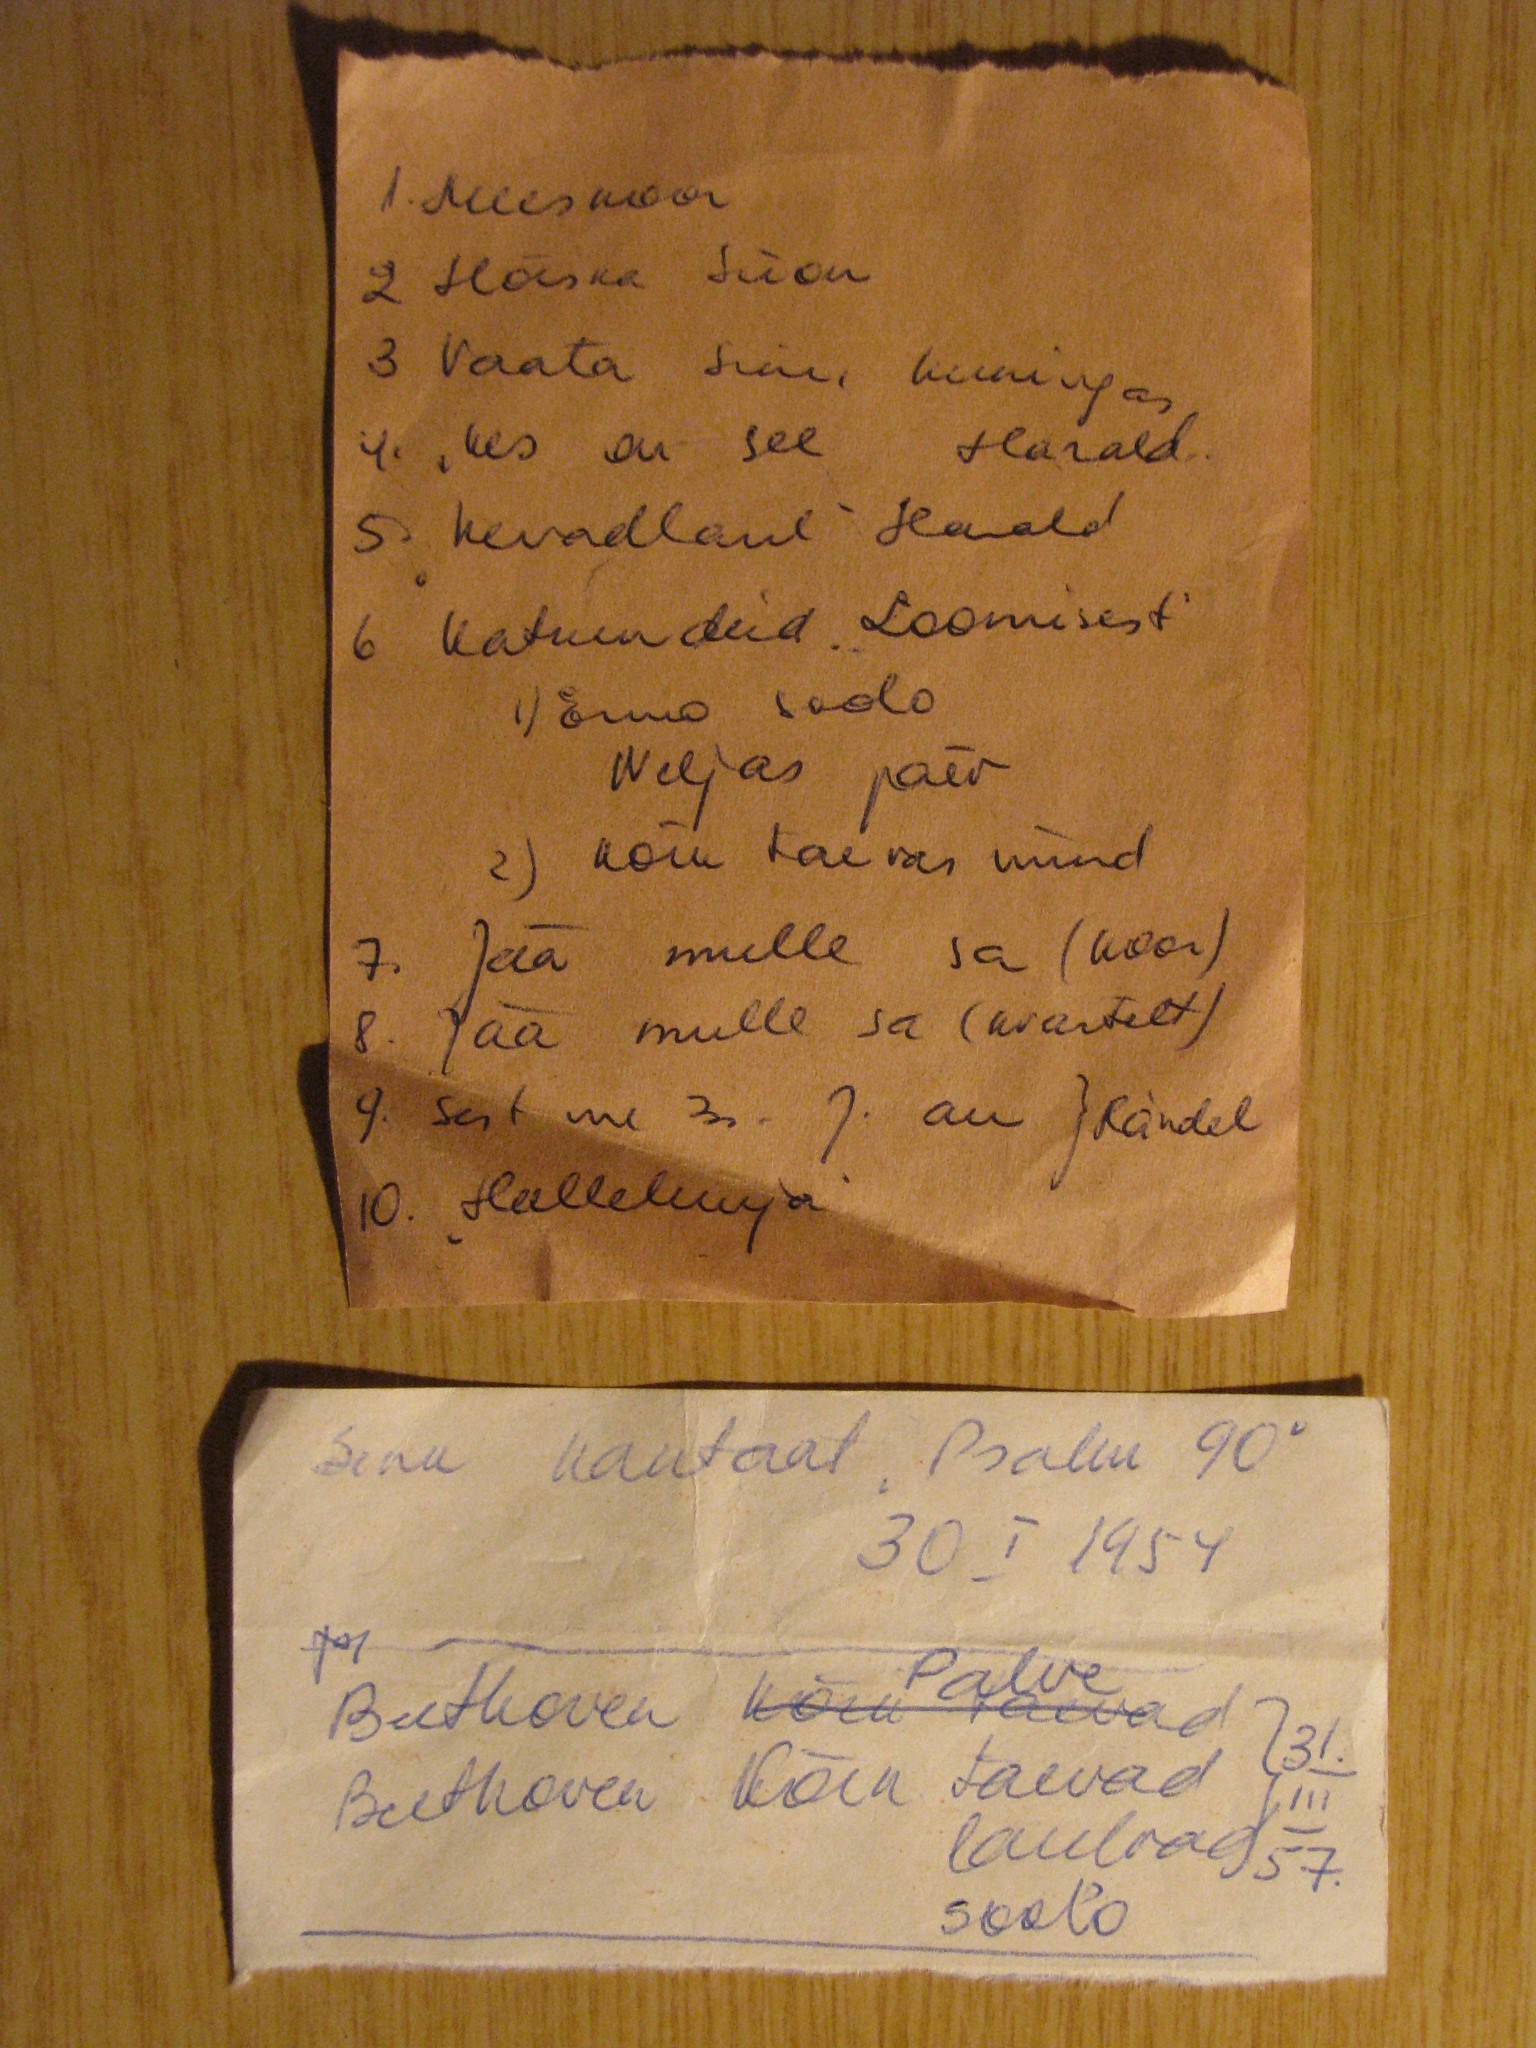 1. Meeskoor
2 Hõiska Siion
3 Vaata sinu kuningas
4. „Kes on see Harald.
5. „Kevadlaul" Harald
6 Katkendeid „Loomisest"
1) Enno soolo
Neljas päev
2) Kõik taevas nüüd
7. Jää mulle sa (koor)
8. Jää mulle sa (kvartett)
9. Sest me J. au } Händel
10. „Halleluuja"
kantaat „Psalm 90"
30 I 1954
Palve
Beethoven Kõik taevad
Beethoven Kõik taevad } 31.
laulvad III
57.
soolo